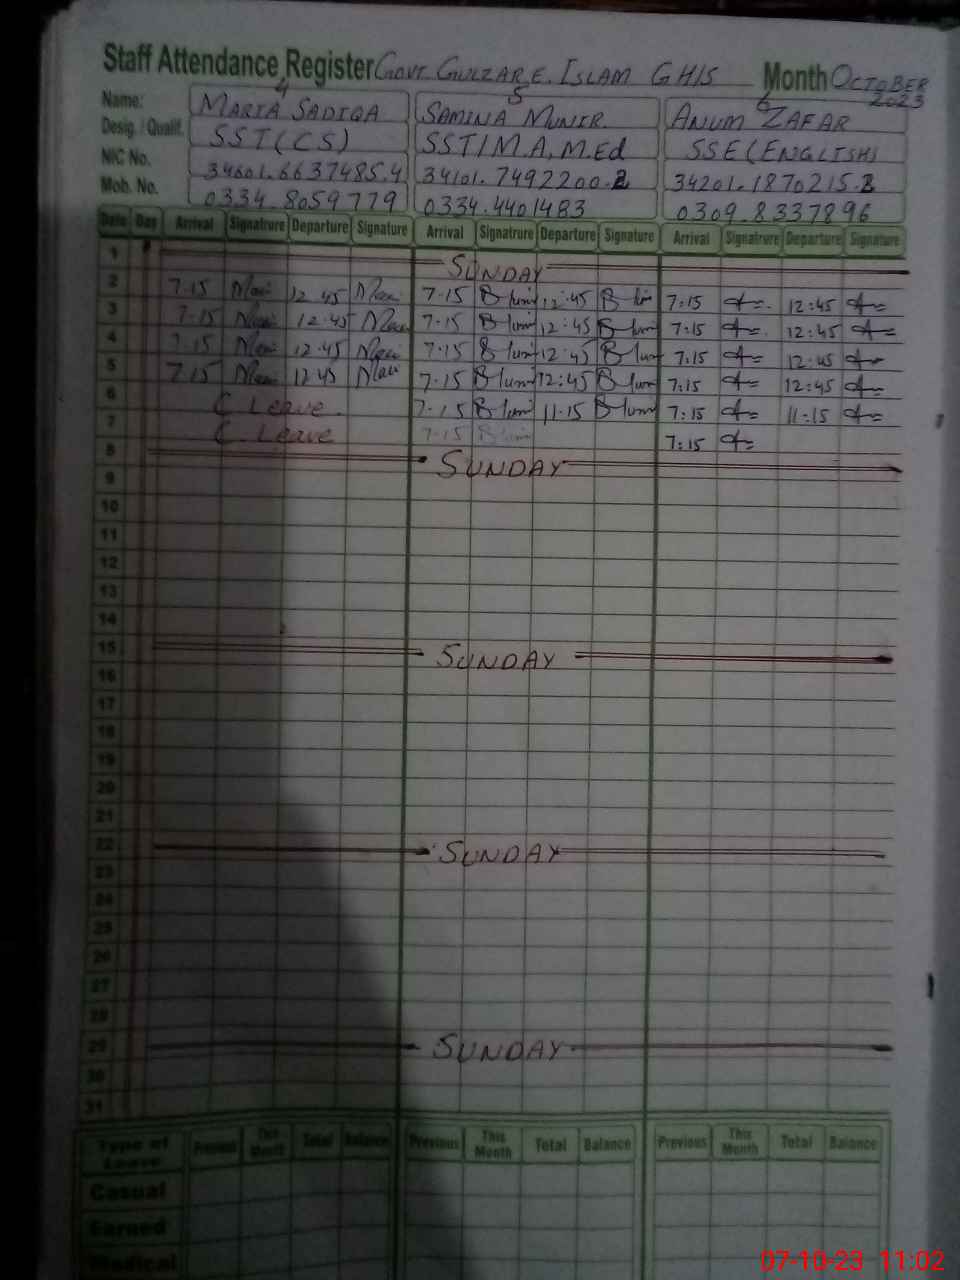 Staff Attendance Register GOVT. GULZAR E. ISLAM GHIS Month OCTOBER 2023
4 5 6
Name: MARIA SADIQA SAMINA MUNIR ANUM ZAFAR
Desig. / Qualif. SST(CS) SST/M.A, M.Ed SSE(ENGLISH)
NIC No. 34601.6637485.4 34101.7492200.2 34201.1870215.2
Mob. No. 0334.8059779 0334.4401483 0309.8337896
Date Day Arrival Signatrure Departure Signature Arrival Signatrure Departure Signature Arrival Signatrure Departure Signature
1 SUNDAY
2 7.15 12.45 7.15 12:45 7:15 12:45
3 7.15 12.45 7.15 12:45 7:15 12:45
4 7.15 12.45 7.15 12:45 7:15 12:45
5 7.15 12.45 7.15 12:45 7:15 12:45
6 C Leave 7.15 11.15 7:15 11:15
7 C. Leave 7.15 7:15
8 SUNDAY
9
10
11
12
13
14
15 SUNDAY
16
17
18
19
20
21
22 SUNDAY
23
24
25
26
27
28
29 SUNDAY
30
31
Type of Leave Previous This Month Total Balance Previous This Month Total Balance Previous This Month Total Balance
Casual
Earned
Medical
07-10-23 11:02